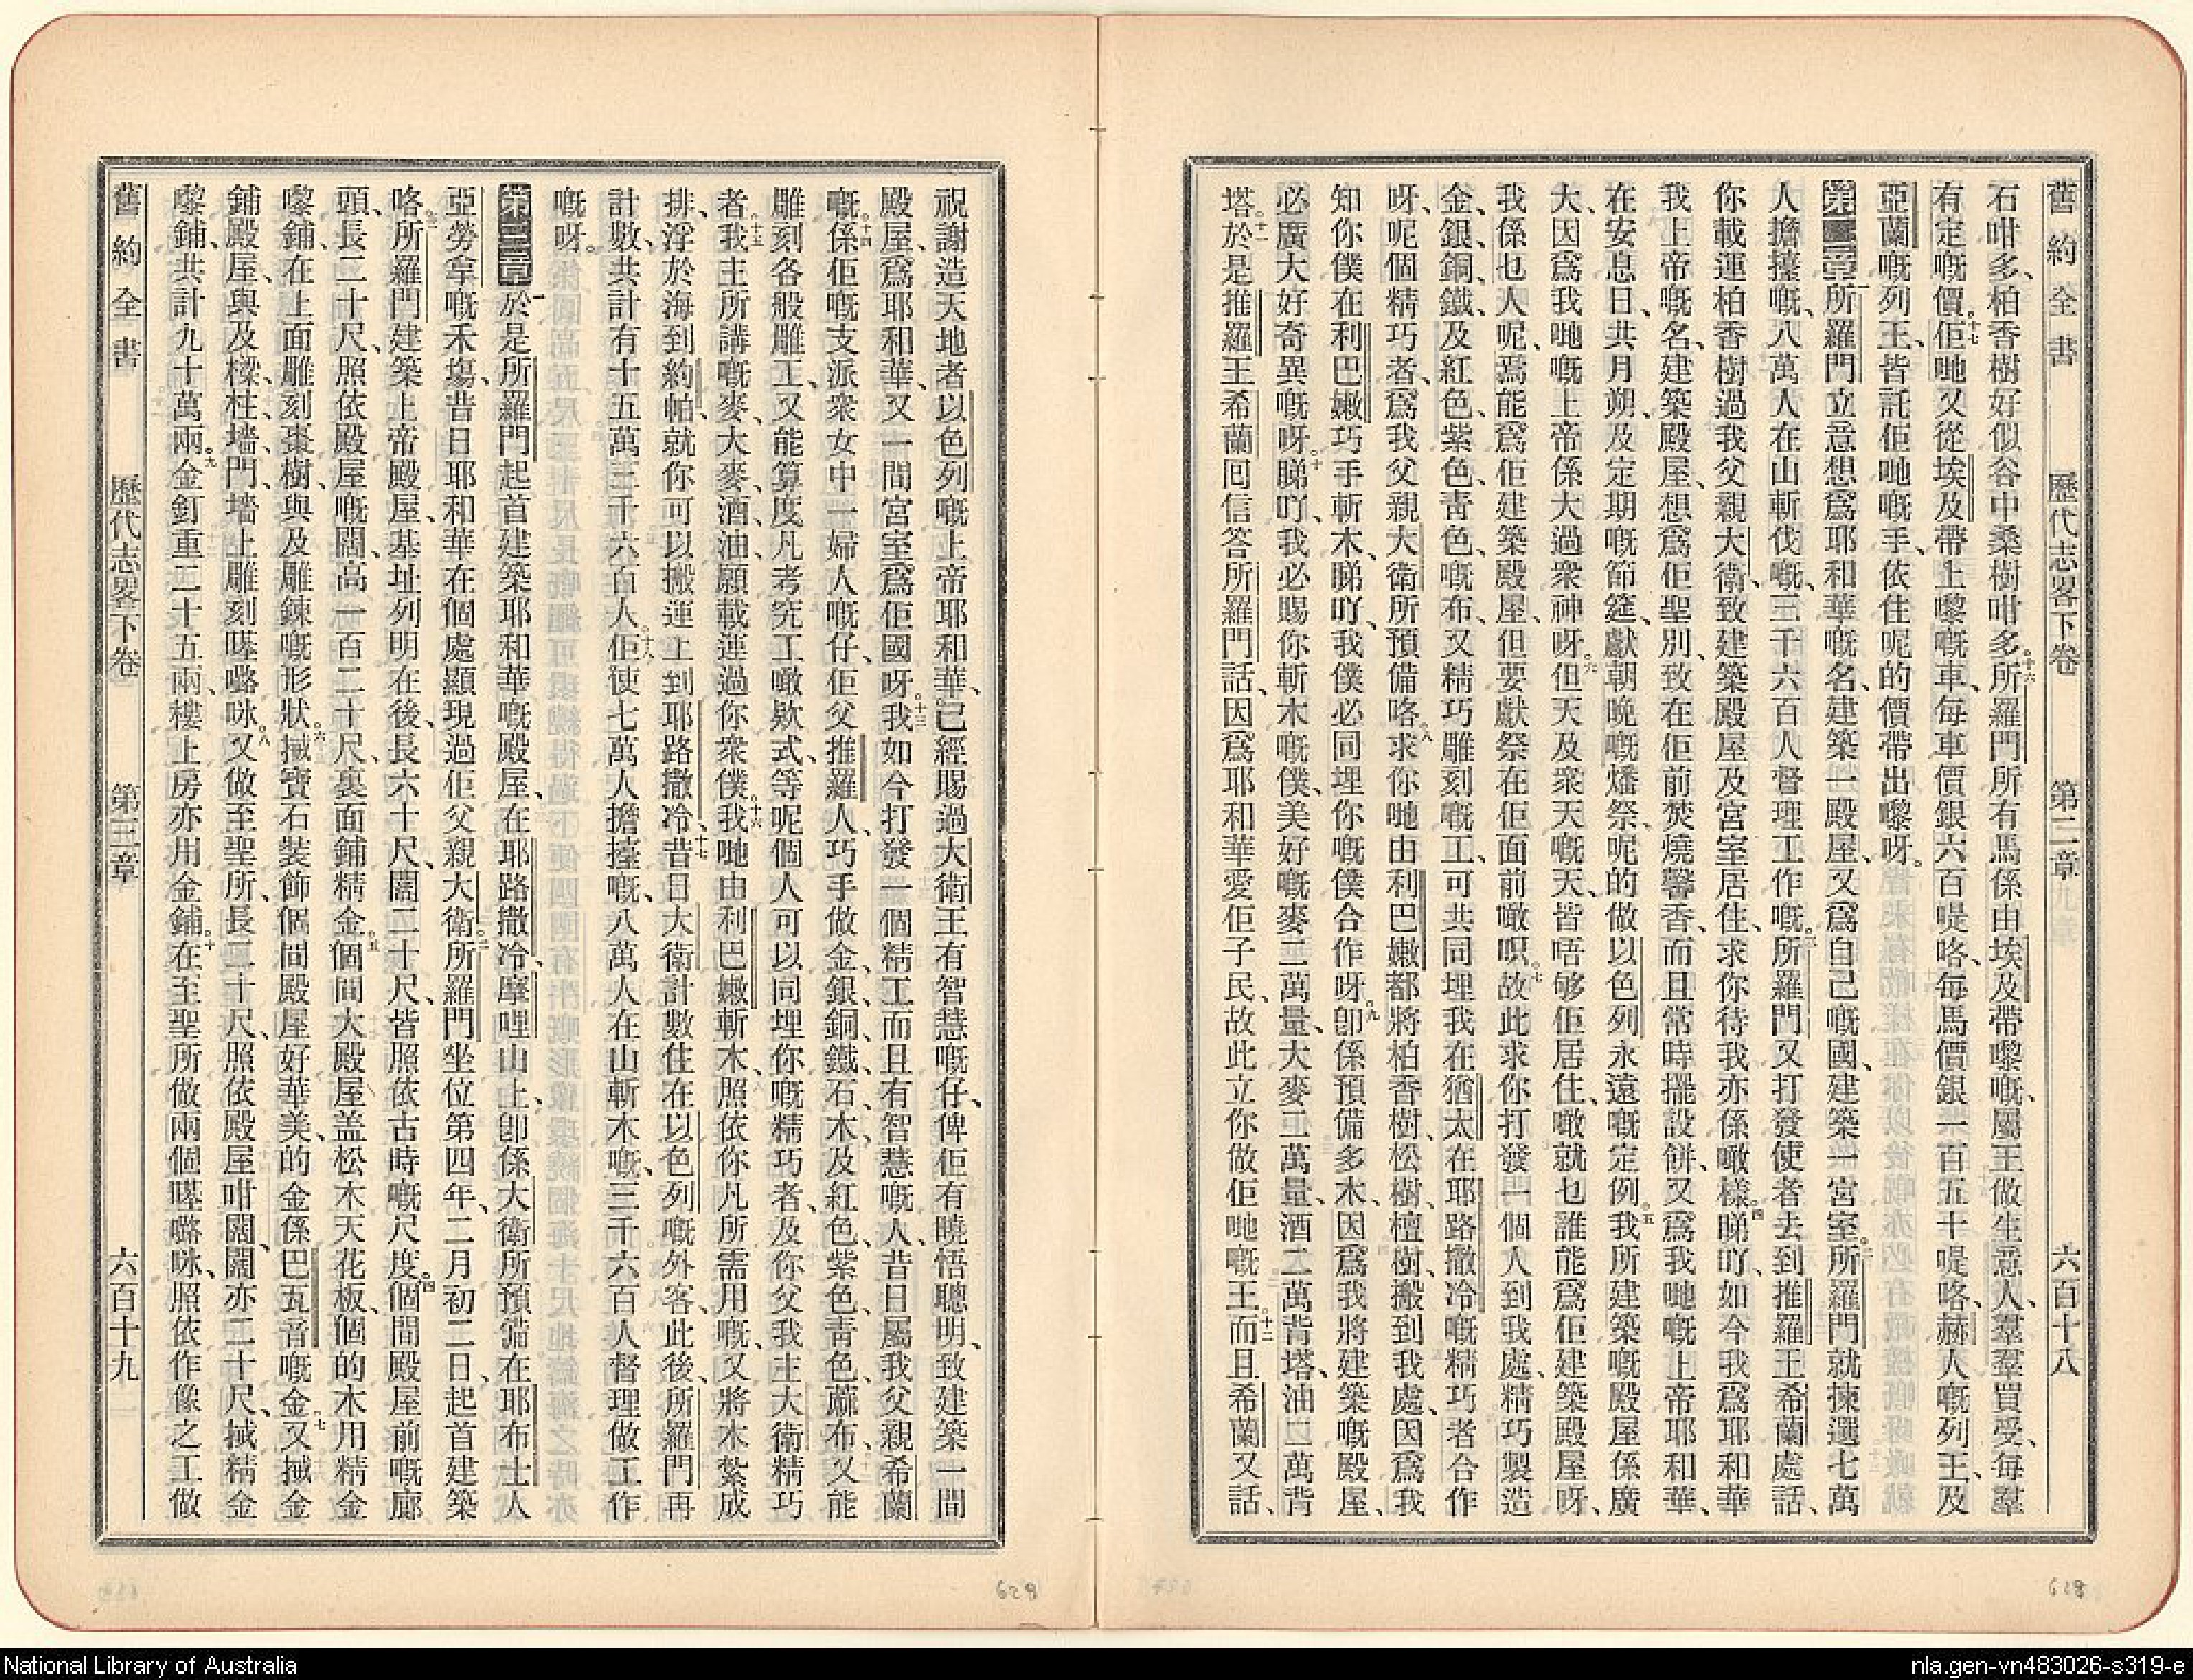 舊約全書 歷代志畧下卷 第二章 六百十八
石咁多、柏香樹好似谷中桑樹咁多。十六所羅門所有馬係由埃及帶嚟嘅、屬王做生意人、羣羣買受、每羣
有定嘅價。十七佢哋又從埃及帶上嚟嘅車、每車價銀六百㖷咯、每馬價銀一百五十㖷咯、赫人嘅列王、及
亞蘭嘅列王、皆託佢哋嘅手、依住呢的價帶出嚟呀。
第二章 一所羅門立意想爲耶和華嘅名、建築一殿屋、又爲自己嘅國、建築一宮室。二所羅門就揀選七萬
人擔擡嘅、八萬人在山斬伐嘅、三千六百人督理工作嘅。三所羅門又打發使者去到推羅王希蘭處話、
你載運柏香樹過我父親大衛、致建築殿屋及宮室居住、求你待我亦係噉樣。四睇吖、如今我爲耶和華
我上帝嘅名、建築殿屋、想爲佢聖別、致在佢前焚燒馨香、而且常時擺設餅、又爲我哋嘅上帝耶和華、
在安息日、共月朔、及定期嘅節筵、獻朝晚嘅燔祭、呢的做以色列永遠嘅定例。五我所建築嘅殿屋係廣
大、因爲我哋嘅上帝係大過衆神呀。六但天及衆天嘅天、皆唔够佢居住、噉就乜誰能爲佢建築殿屋呀、
我係乜人呢、焉能爲佢建築殿屋、但要獻祭在佢面前噉呮。七故此求你打發一個人到我處、精巧製造
金、銀、銅、鐵、及紅色、紫色、青色、嘅布、又精巧雕刻嘅工、可共同埋我在猶太在耶路撒冷嘅精巧者合作
呀、呢個精巧者、爲我父親大衛所預備咯。八求你哋由利巴嫩都將柏香樹、松樹、檀樹、搬到我處、因爲我
知你僕在利巴嫩巧手斬木、睇吖、我僕必同埋你嘅僕合作呀。九卽係預備多木、因爲我將建築嘅殿屋、
必廣大好奇異嘅呀。十睇吖、我必賜你斬木嘅僕、美好嘅麥二萬量、大麥二萬量、酒二萬背塔、油二萬背
塔。十一於是推羅王希蘭囘信答所羅門話、因爲耶和華愛佢子民、故此立你做佢哋嘅王。十二而且希蘭又話、
祝謝造天地者、以色列嘅上帝耶和華、已經賜過大衛王有智慧嘅仔、俾佢有曉悟聰明、致建築一間
殿屋、爲耶和華、又一間宮室、爲佢國呀。十三我如今打發一個精工而且有智慧嘅人、昔日屬我父親希蘭
嘅。十四係佢嘅支派衆女中一婦人嘅仔、佢父推羅人、巧手做金、銀、銅、鐵、石、木、及紅色、紫色、青色、蔴布、又能
雕刻各般雕工、又能算度凡考究工噉欵式、等呢個人可以同埋你嘅精巧者、及你父我主大衛精巧
者。十五我主所講嘅麥、大麥、酒、油、願載運過你衆僕。十六我哋由利巴嫩斬木、照依你凡所需用嘅、又將木紮成
排、浮於海到約帕、就你可以搬運上到耶路撒冷。十七昔日大衛計數住在以色列嘅外客、此後、所羅門再
計數、共計有十五萬三千六百人。十八佢使七萬人擔擡嘅、八萬人在山斬木嘅、三千六百人督理做工作
嘅呀。
第三章 一於是所羅門起首建築耶和華嘅殿屋、在耶路撒冷摩哩山上、卽係大衛所預備在耶布士人
亞勞拿嘅禾塲、昔日耶和華在個處顯現過佢父親大衛。二所羅門坐位第四年、二月初二日、起首建築
咯。三所羅門建築上帝殿屋、基址列明在後、長六十尺、闊二十尺、皆照依古時嘅尺度。四個間殿屋前嘅廊
頭、長二十尺、照依殿屋嘅闊、高一百二十尺、裏面鋪精金。五個間大殿屋盖松木天花板、個的木用精金
嚟鋪、在上面雕刻棗樹、與及雕鍊嘅形狀。六搣寶石裝飾個間殿屋好華美、的金係巴瓦音嘅金。七又搣金
鋪殿屋、與及樑、柱、墙、門、墙上雕刻𠺘嚕㖇。八又做至聖所、長二十尺、照依殿屋咁闊、闊亦二十尺、搣精金
嚟鋪、共計九十萬兩。九金釘重二十五兩、樓上房亦用金鋪。十在至聖所做兩個𠺘嚕㖇、照依作像之工做
舊約全書 歷代志畧下卷 第三章 六百十九
628
628
National Library of Australia
nla.gen-vn483026-s319-e